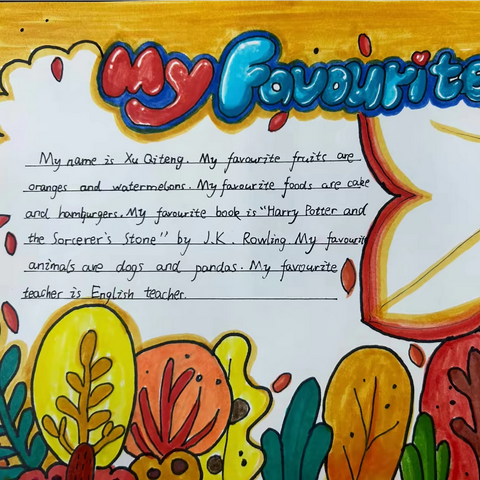 My Favourite
My name is Xu Qiteng. My favourite fruits are
oranges and watermelons. My favourite foods are cake
and hamburgers. My favourite book is "Harry Potter and
the Sorcerer's Stone" by J.K. Rowling My favourite
animals are dogs and pandas. My favourite
teacher is English teacher.